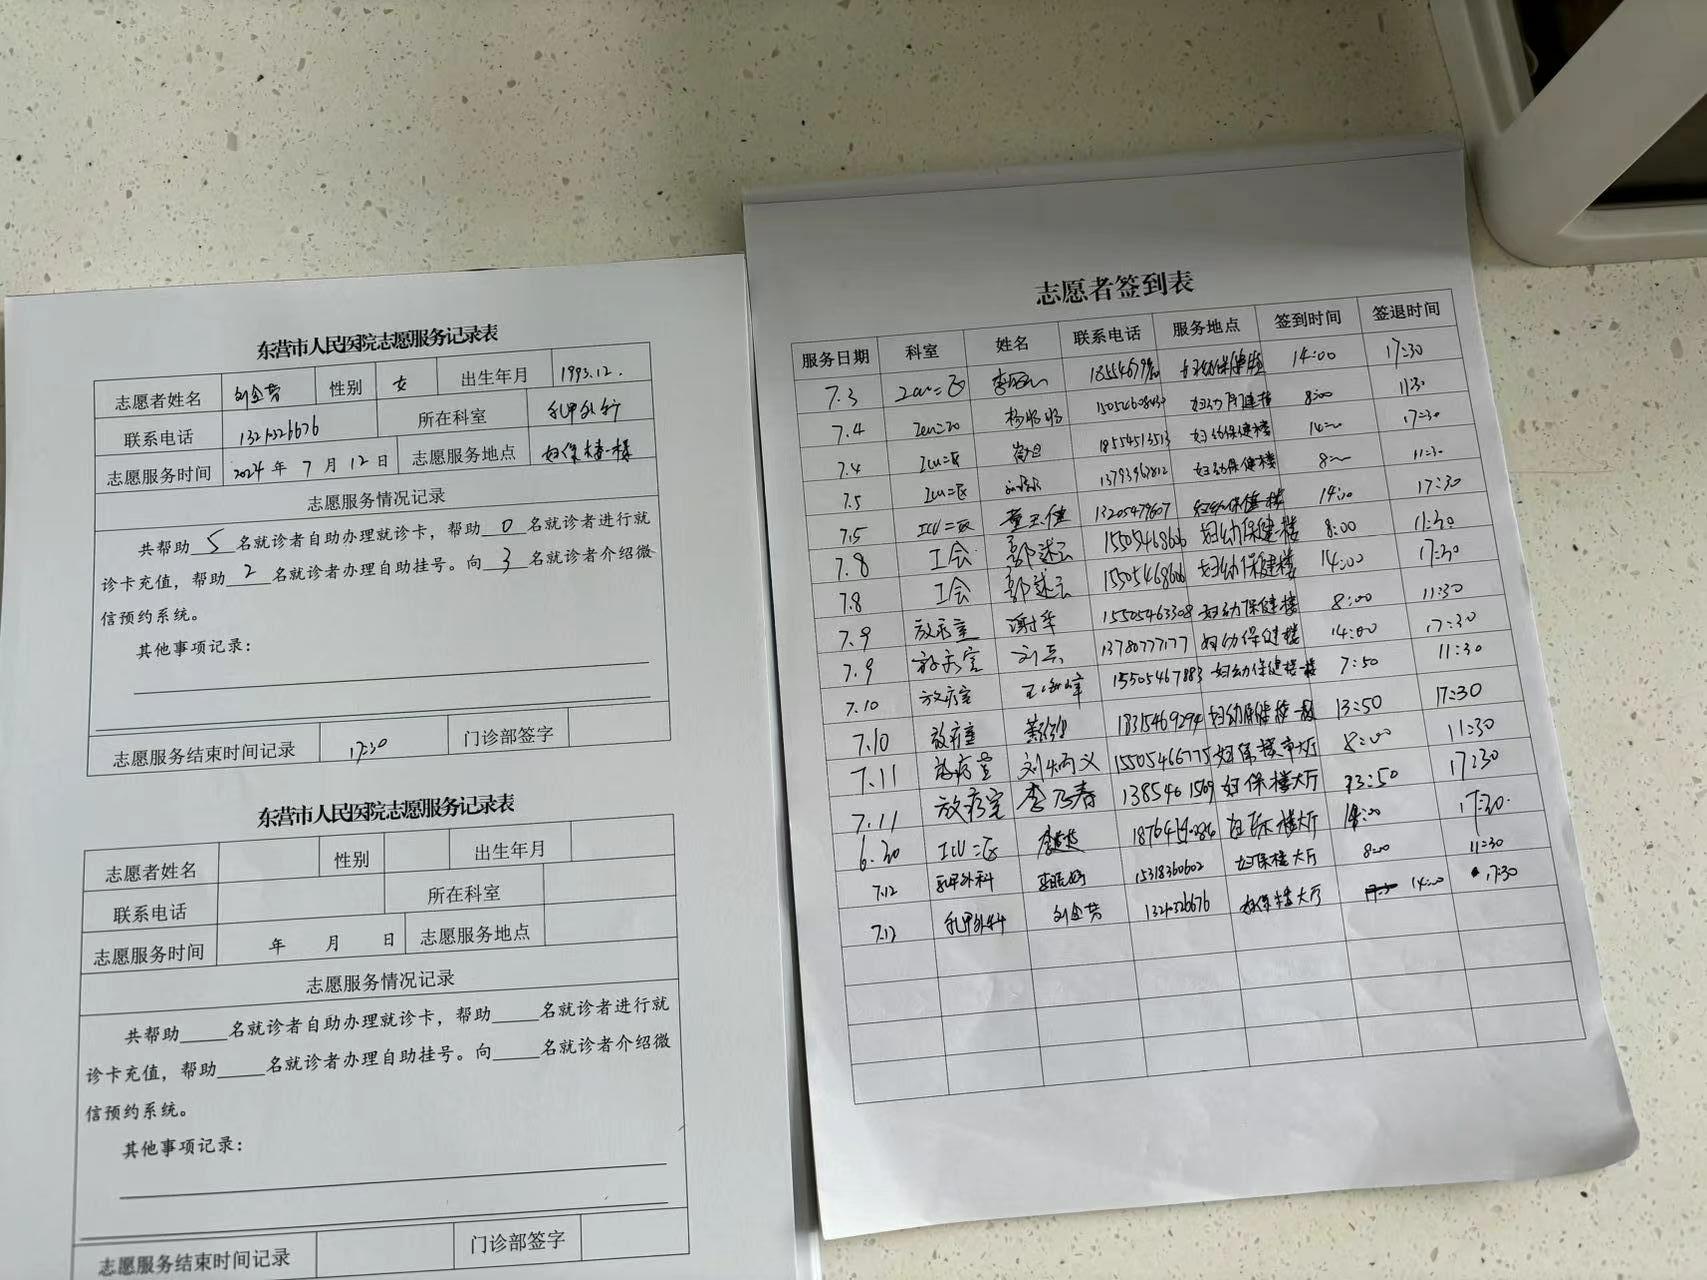 东营市人民医院志愿服务记录表
志愿者姓名 刘金芳 性别 女 出生年月 1993.12.
联系电话 所在科室 乳甲外科
志愿服务时间 2024年 7月 12日 志愿服务地点 妇保楼一楼
志愿服务情况记录
共帮助 5 名就诊者自助办理就诊卡，帮助 0 名就诊者进行就
诊卡充值，帮助 2 名就诊者办理自助挂号。向 3 名就诊者介绍微
信预约系统。
其他事项记录：
志愿服务结束时间记录 17:30 门诊部签字
东营市人民医院志愿服务记录表
志愿者姓名 性别 出生年月
联系电话 所在科室
志愿服务时间 年 月 日 志愿服务地点
志愿服务情况记录
共帮助____名就诊者自助办理就诊卡，帮助____名就诊者进行就
诊卡充值，帮助____名就诊者办理自助挂号。向____名就诊者介绍微
信预约系统。
其他事项记录：
志愿服务结束时间记录 门诊部签字
志愿者签到表
服务日期 科室 姓名 联系电话 服务地点 签到时间 签退时间
7.3 Icu二区 妇幼保健楼 14:00 17:30
7.4 Icu二区 8:00 11:30
7.4 Icu二区 18554513513 妇幼保健楼 17:30
7.5 Icu二区 13793962812 妇幼保健楼 11:30
7.5 ICU二区 董玉健 13205479607 妇幼保健一楼 14:00 17:30
7.8 工会 郭述云 15505468606 妇幼保健一楼 8:00 11:30
7.8 工会 郭述云 15505468606 妇幼保健楼 14:00 17:30
7.9 放疗室 谢华 15505463308 妇幼保健楼 8:00 11:30
7.9 放疗室 刘兵 13780777177 妇幼保健楼 14:00 17:30
7.10 放疗室 15505467883 妇幼保健楼一楼 7:50 11:30
7.10 放疗室 18315469294 妇幼保健楼一楼 13:50 17:30
7.11 放疗室 刘炳义 15505466775 妇保楼大厅 8:00 11:30
7.11 放疗室 李乃春 妇保楼大厅 13:50 17:30
6.30 ICU二区 妇保楼大厅 14:00 17:30
7.12 乳甲外科 15318360602 妇保楼大厅 8:00 11:30
7.12 乳甲外科 刘金芳 妇保楼大厅 14:00 17:30